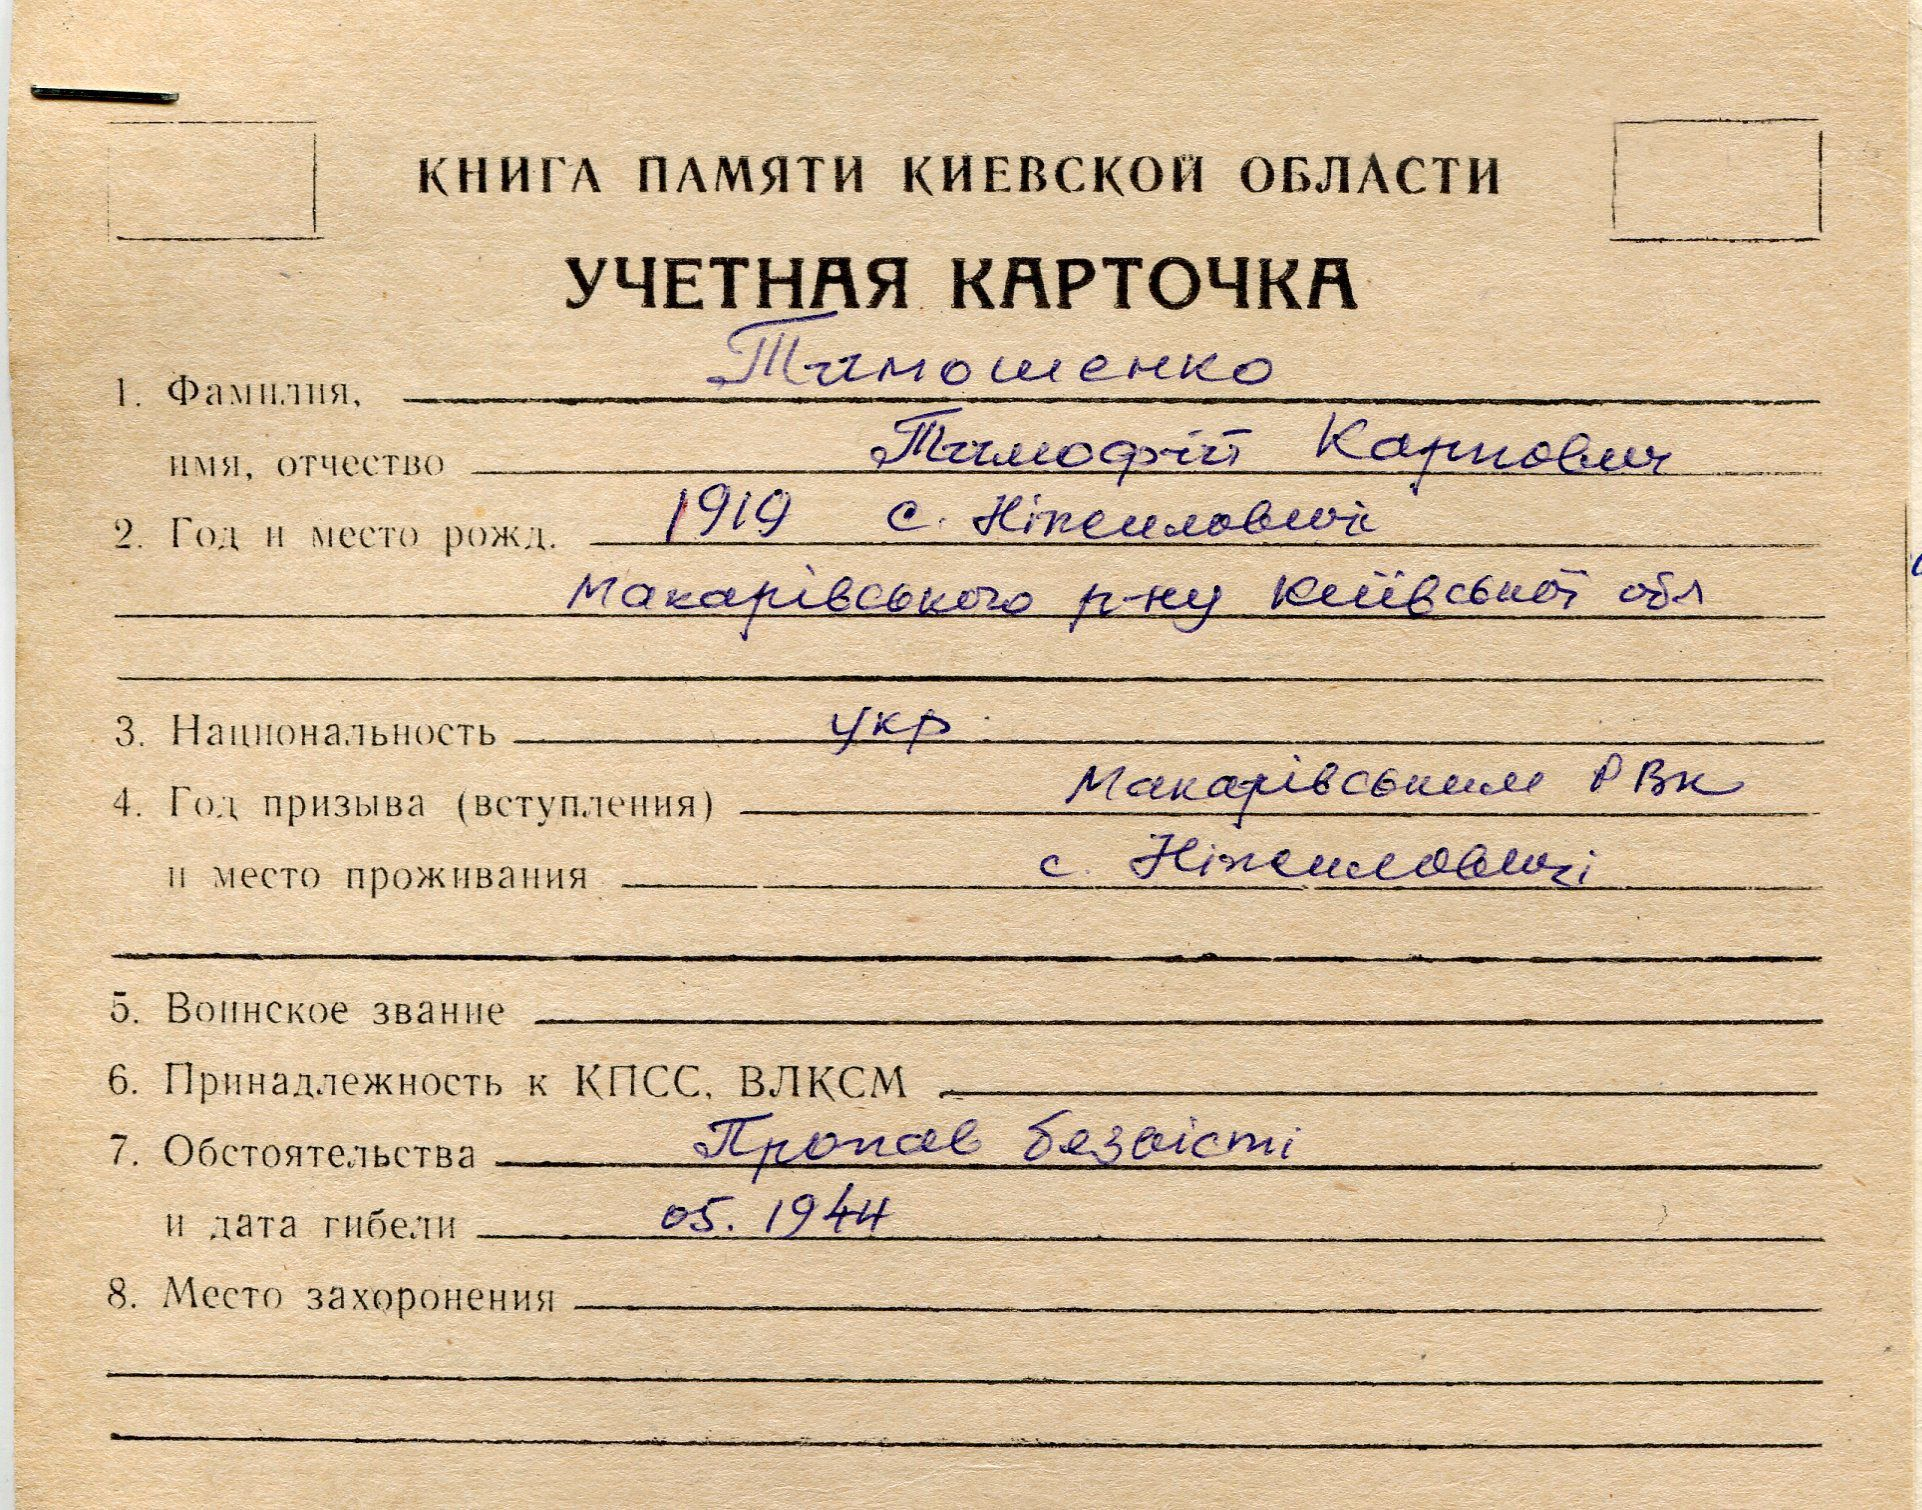 КНИГА ПАМЯТИ КИЕВСКОЙ ОБЛАСТИ
УЧЕТНАЯ КАРТОЧКА
1. Фамилия, Тимошенко
имя, отчество Тимофій Карпович
2. Год и место рожд. 1919 с. Ніжиловичі
Макарівського р-ну Київської обл
3. Национальность укр.
4. Год призыва (вступления) Макарівським РВк
и место проживания с. Ніжиловичі
5. Воинское звание
6. Принадлежность к КПСС, ВЛКСМ
7. Обстоятельства Пропав безвісті
и дата гибели 05. 1944
8. Место захоронения